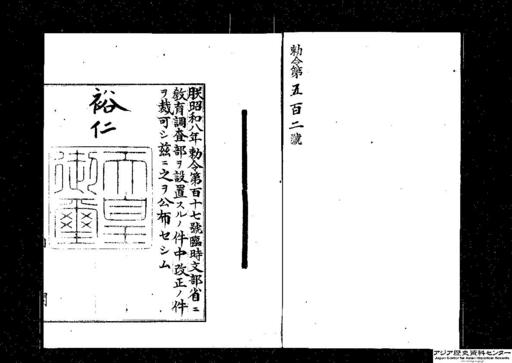 勅令第五百二號
朕昭和八年勅令第百十七號臨時文部省ニ
教育調査部ヲ設置スルノ件中改正ノ件
ヲ裁可シ茲ニ之ヲ公布セシム
裕仁
天皇
御璽
アジア歴史資料センター
Japan Center for Asian Historical Records